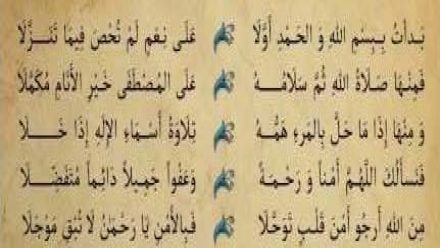 بَدَأْتُ بِبِسْمِ اللهِ وَ الْحَمْدِ أَوَّلَا عَلَى نِعَمٍ لَمْ تُحْصَ فِيمَا تَنَزَّلَا
فَمِنْهَا صَلَاةُ اللهِ ثُمَّ سَلَامُهُ عَلَى الْمُصْطَفَى خَيْرِ الْأَنَامِ مُكَمَّلَا
وَ مِنْهَا إِذَا مَا حَلَّ بِالْمَرءِ هَمُّهُ تِلَاوَةُ أَسْمَاءِ الْإِلَهِ إِذَا خَلَا
فَنَسأَلُكَ اللَّهُمَّ أَمْناً وَ رَحْمَةً وَ عَفْواً جَمِيلاً دَائِماً مُتَفَضِّلَا
مِنَ اللهِ أَرجُو أَمْنَ قَلْبٍ تَوَحَّلَا فَبِالْأَمْنِ يَا رَحْمَنُ لَا تُبْقِ مَوْجَلَا